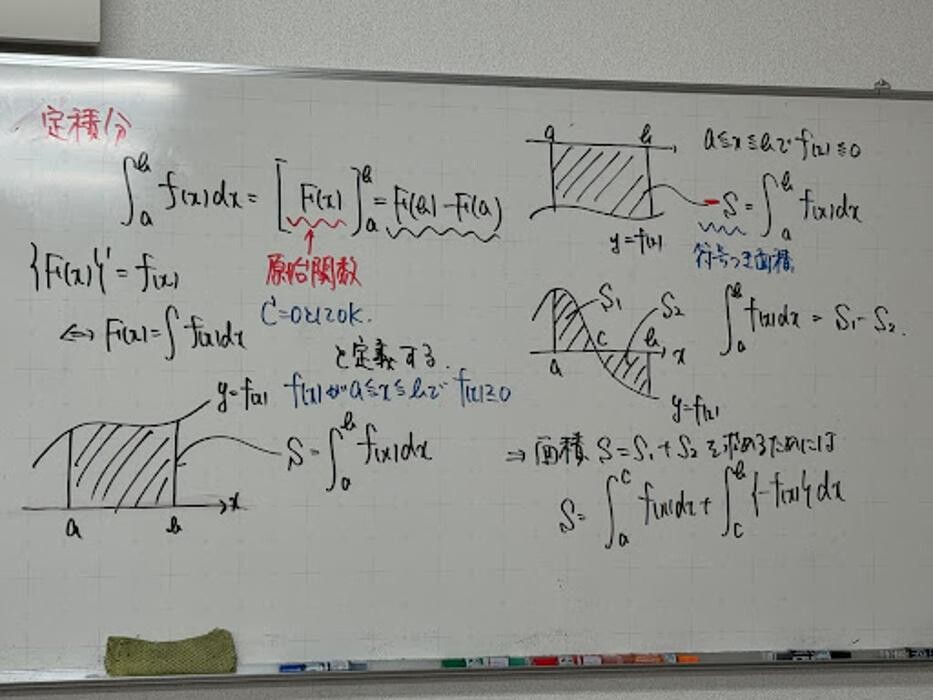 定積分
∫_a^b f(x)dx = [F(x)]_a^b = F(b) - F(a)
原始関数
{F(x)}' = f(x)
C=0としてOK.
⇔ F(x) = ∫ f(x)dx
と定義する.
y=f(x) f(x)が a≦x≦b で f(x)≧0
S = ∫_a^b f(x)dx
a b x
a b a≦x≦b で f(x)≦0
-S = ∫_a^b f(x)dx
y=f(x) 符号つき面積
S₁ S₂ ∫_a^b f(x)dx = S₁ - S₂.
a c b x
y=f(x)
⇒ 面積 S=S₁+S₂ を求めるためには
S = ∫_a^c f(x)dx + ∫_c^b {-f(x)}dx